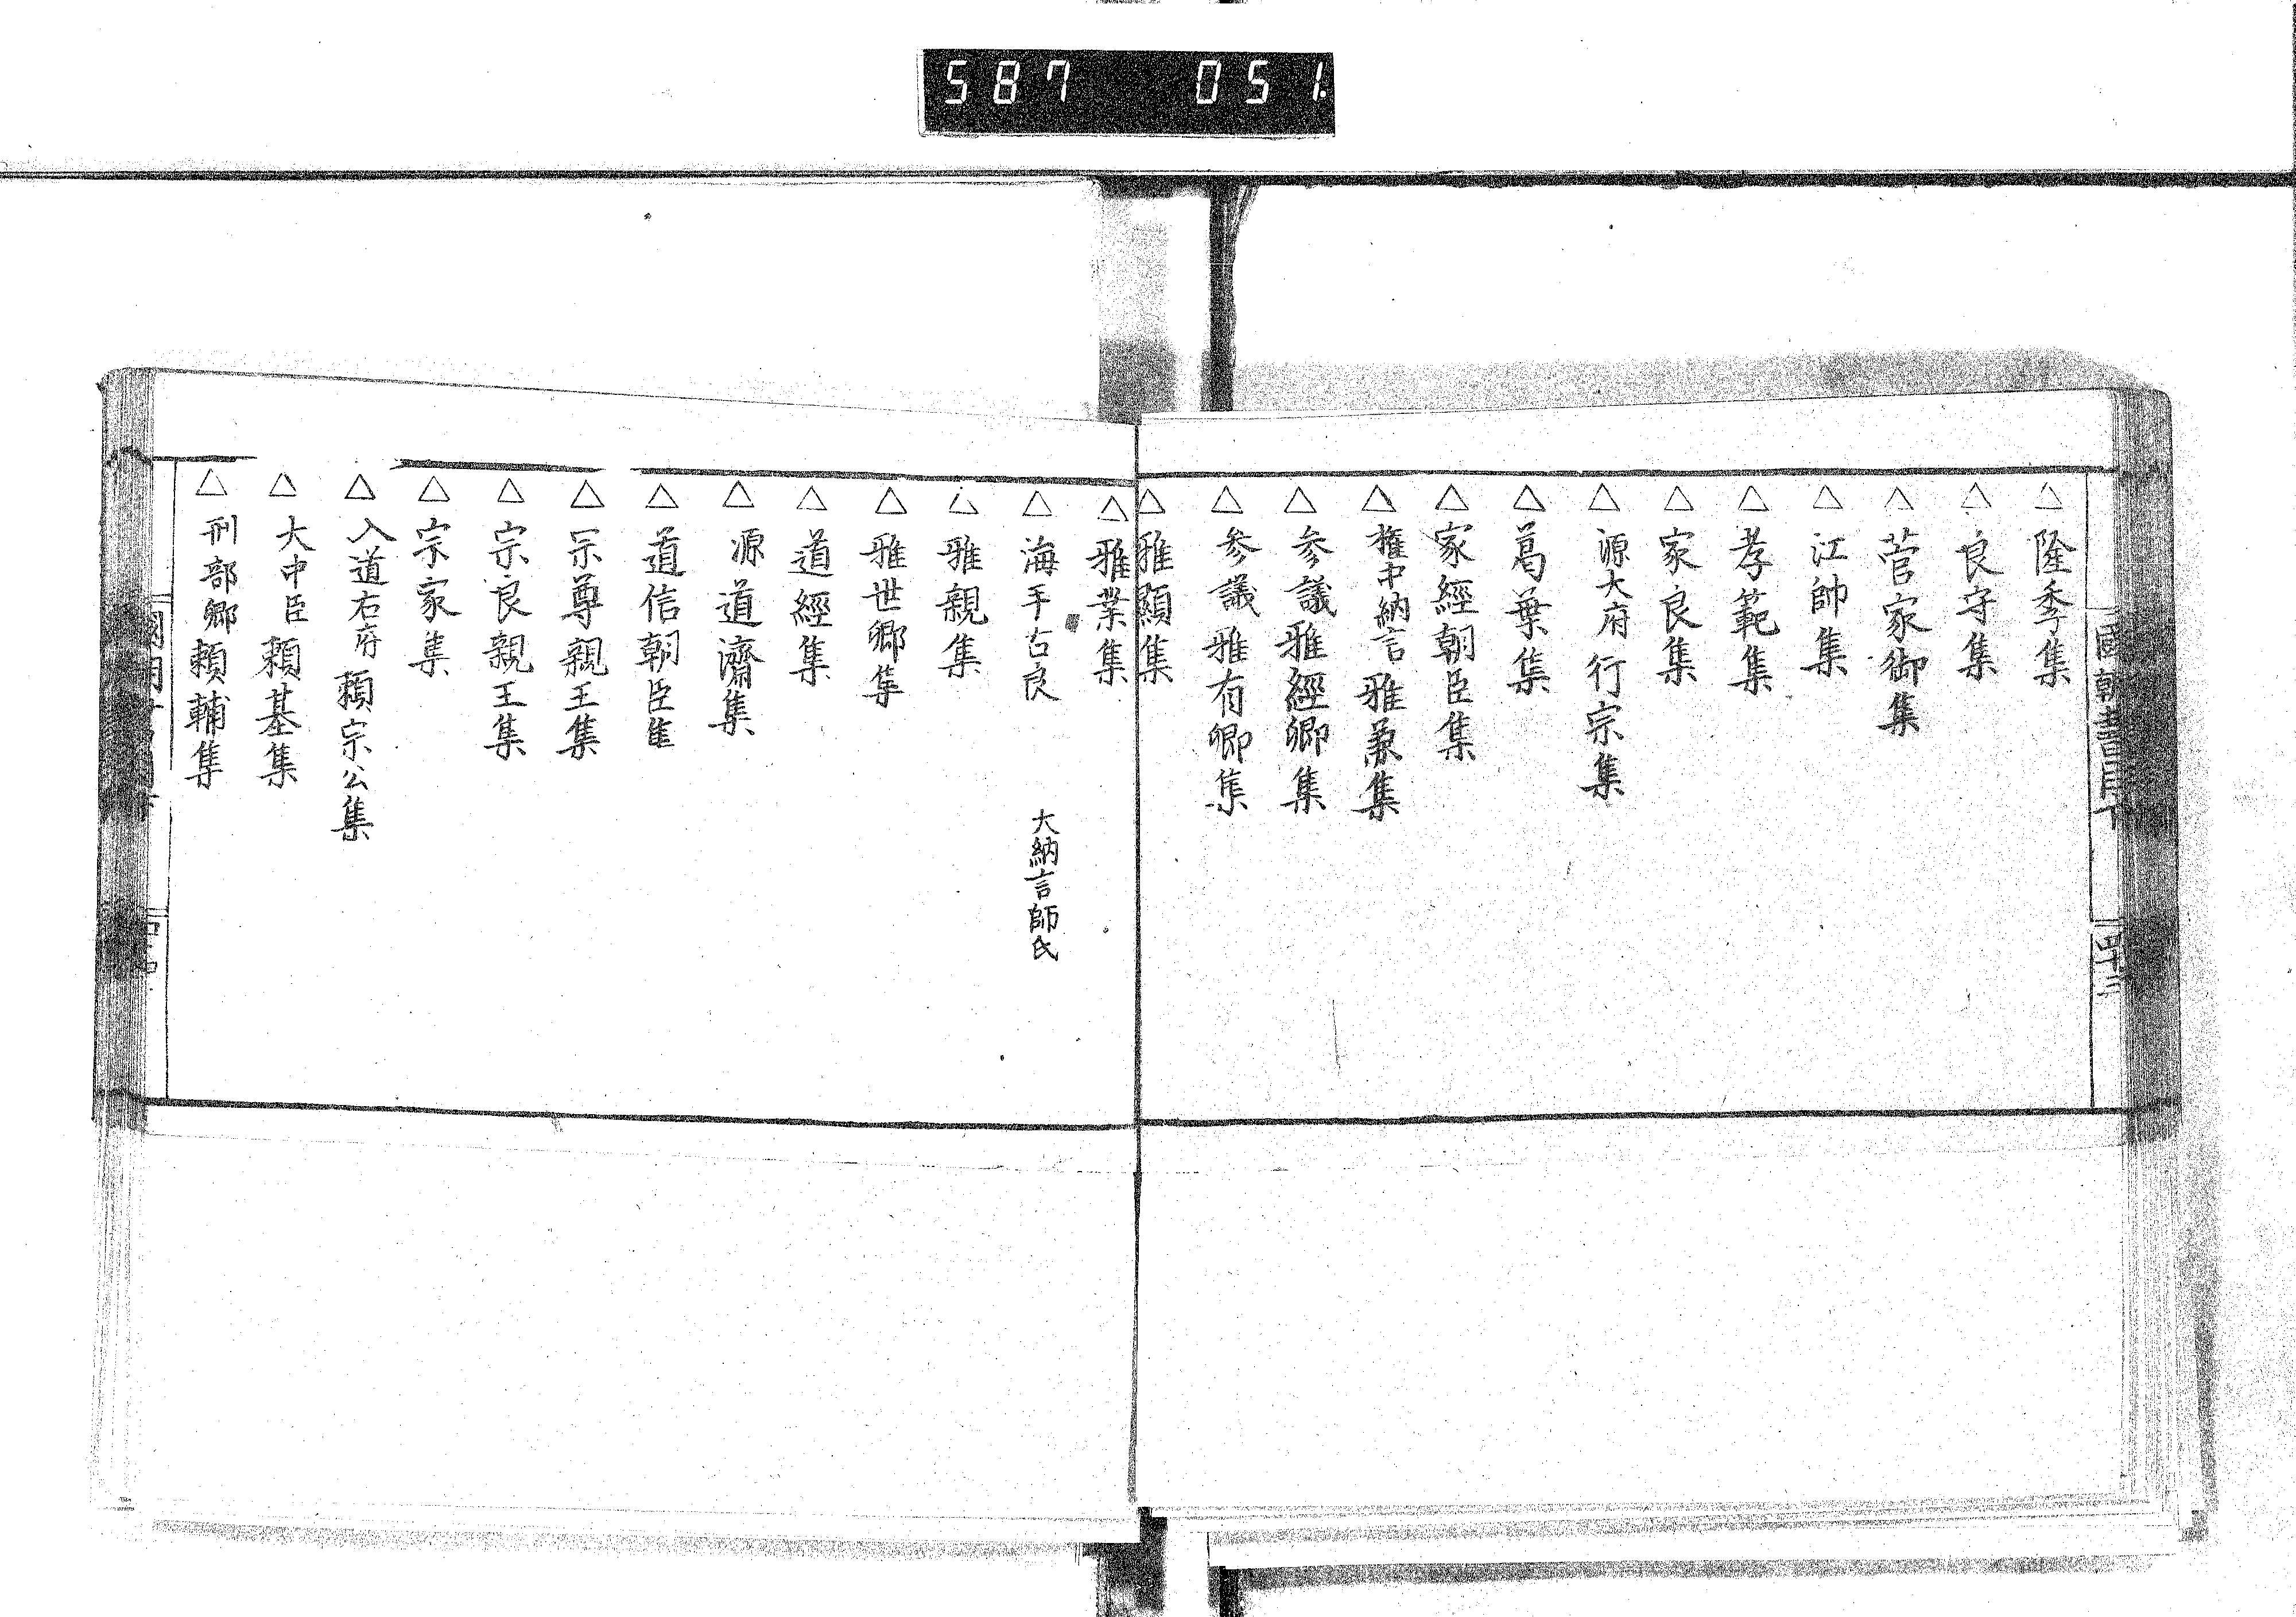 587 051.
國朝書目下
四十三
△隆季集
△良守集
△菅家御集
△江帥集
△孝範集
△家良集
△源大府行宗集
△葛葉集
△家經朝臣集
△權中納言雅兼集
△参議雅經卿集
△参議雅有卿集
△雅顯集
△雅業集
△海手古良 大納言師氏
△雅親集
△雅世卿集
△道經集
△源道濟集
△道信朝臣集
△宗尊親王集
△宗良親王集
△宗家集
△入道右府賴宗公集
△大中臣賴基集
△刑部卿賴輔集